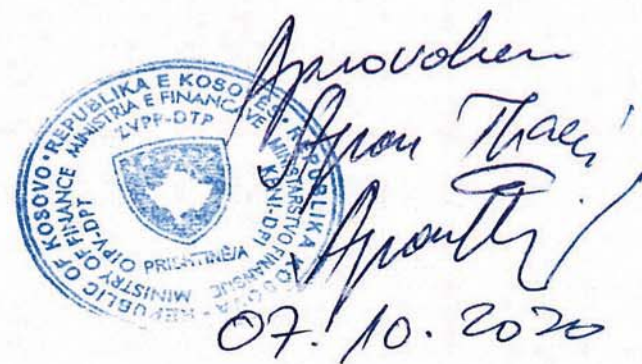 Aprovohen
Agron Thaçi
07.10.2020
REPUBLIKA E KOSOVËS • REPUBLIKA KOSOVA • REPUBLIC OF KOSOVO
MINISTRIA E FINANCAVE MINISTARSTVO FINANSIJE MINISTRY OF FINANCE
ZVPP-DTP
KANI-DPI
OIPV-DPT
PRISHTINË/A